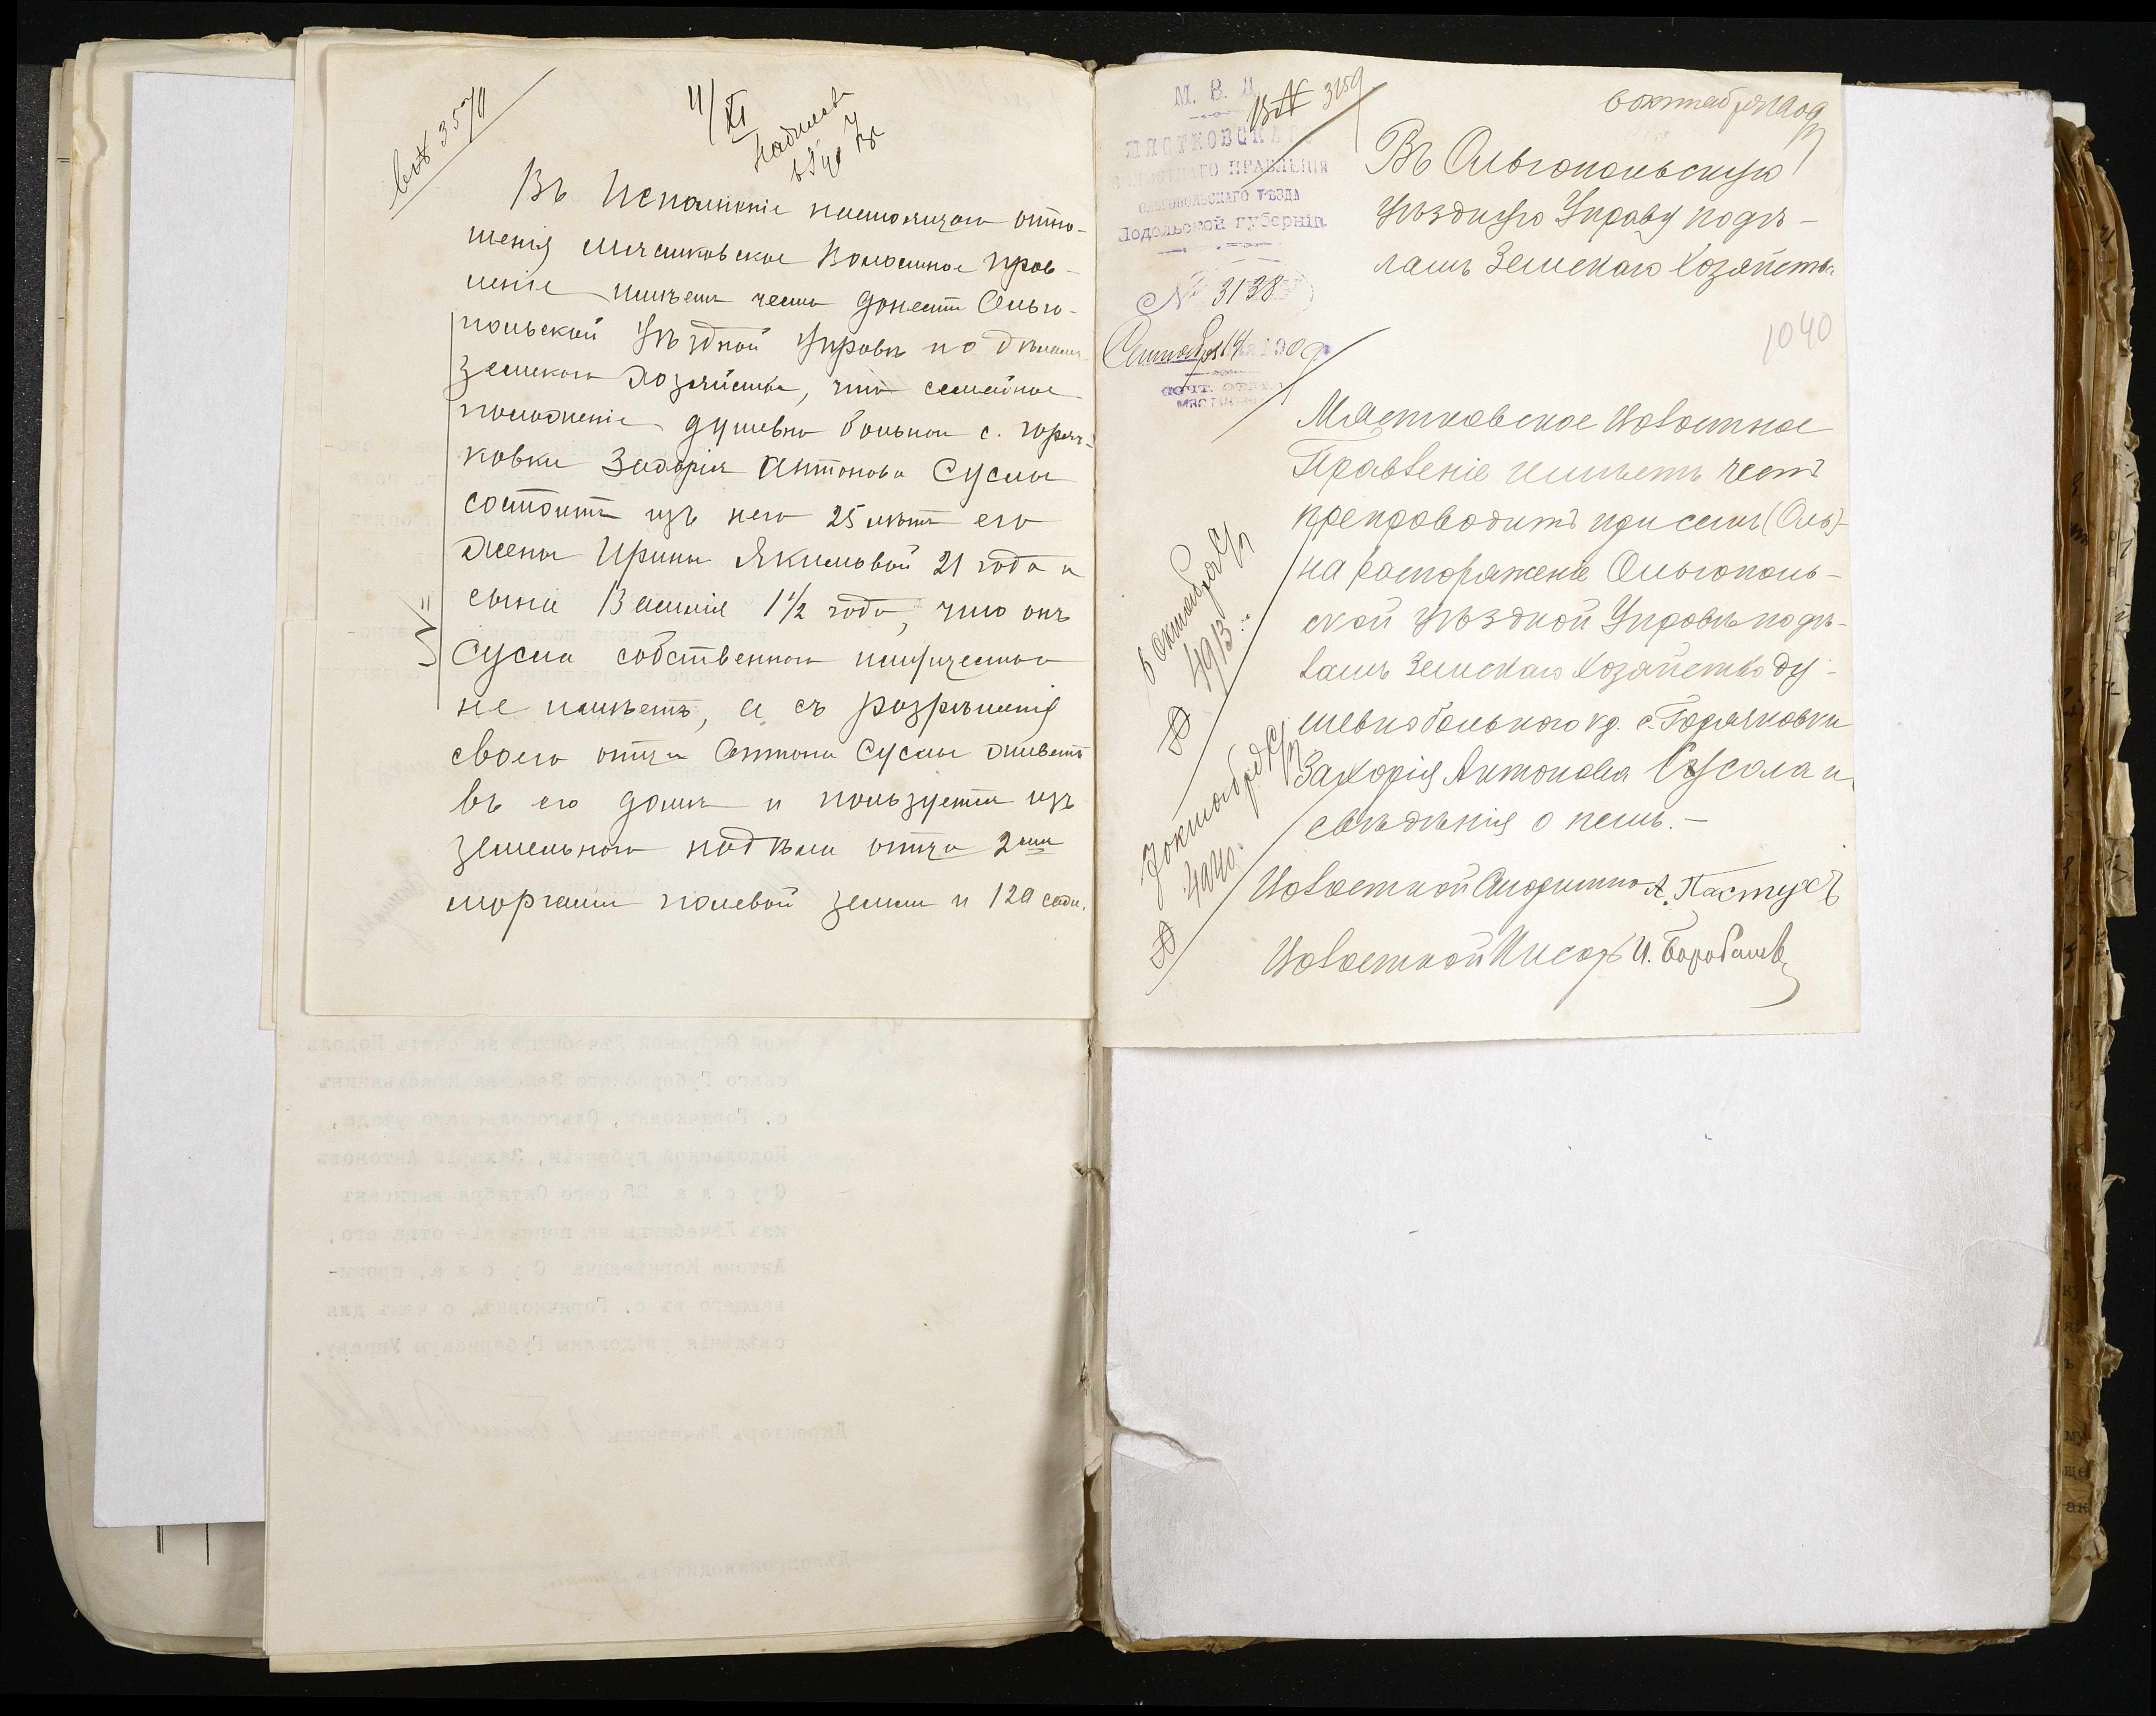 вх 3570
11/XI
Въ Исполненіе настоящаго отно-
шенія Мястковское Волостное Прав-
леніе имѣетъ честь донести Ольго-
польской Уѣздной Управѣ по дѣламъ
Земскаго Хозяйства, что семейное
положеніе душевно больного с. Горяч-
ковки Захарія Антонова Сусла
состоитъ изъ него 25 лѣтъ его
жены Ирины Якимовой 21 года и
сына Василія 1½ года, что онъ
Сусла собственнаго имущества
не имѣетъ, а съ разрѣшенія
своего отца Антона Суслы живетъ
въ его домѣ и пользуется изъ
земельнаго надѣла отца 2мя
моргами полевой земли и 120 саж.
М. В. Д.
вх 3259
МЯСТКОВСКАГО
ВОЛОСТНАГО ПРАВЛЕНІЯ
ОЛЬГОПОЛЬСКАГО УѢЗДА
Подольской губерніи.
№ 3138
Сентября 14 дня 1909 г.
6 октября 1909
Въ Ольгопольскую
Уѣздную Управу по дѣ-
ламъ Земскаго Хозяйства
1040
Мястковское Волостное
Правленіе имѣетъ честь
препроводить при семъ
на распоряженіе Ольгополь-
ской Уѣздной Управѣ по дѣ-
ламъ Земскаго Хозяйства ду-
шевнобольного кр. с. Горячковки
Захорія Антонова Сусола и
свѣдѣнія о немъ.-
Волостной Старшина А. Пастухъ
Волостной Писарь И.
6 Октября
4913
7 октября
4940
кой Окружной Лѣчебницѣ за счетъ Подоль
скаго Губернскаго Земства крестьянинъ
с. Горячковки, Ольгопольскаго уѣзда,
Подольской губерніи, Захарій Антоновъ
С у с л а 25 сего Октября выписанъ
изъ Лѣчебницы на попеченіе отца его,
Антона Корнѣевича С у с л а, прожи-
вающаго въ с. Горячковкѣ, о чемъ для
свѣдѣнія увѣдомляю Губернскую Управу.
Директоръ Лѣчебницы
Дѣлопроизводитель